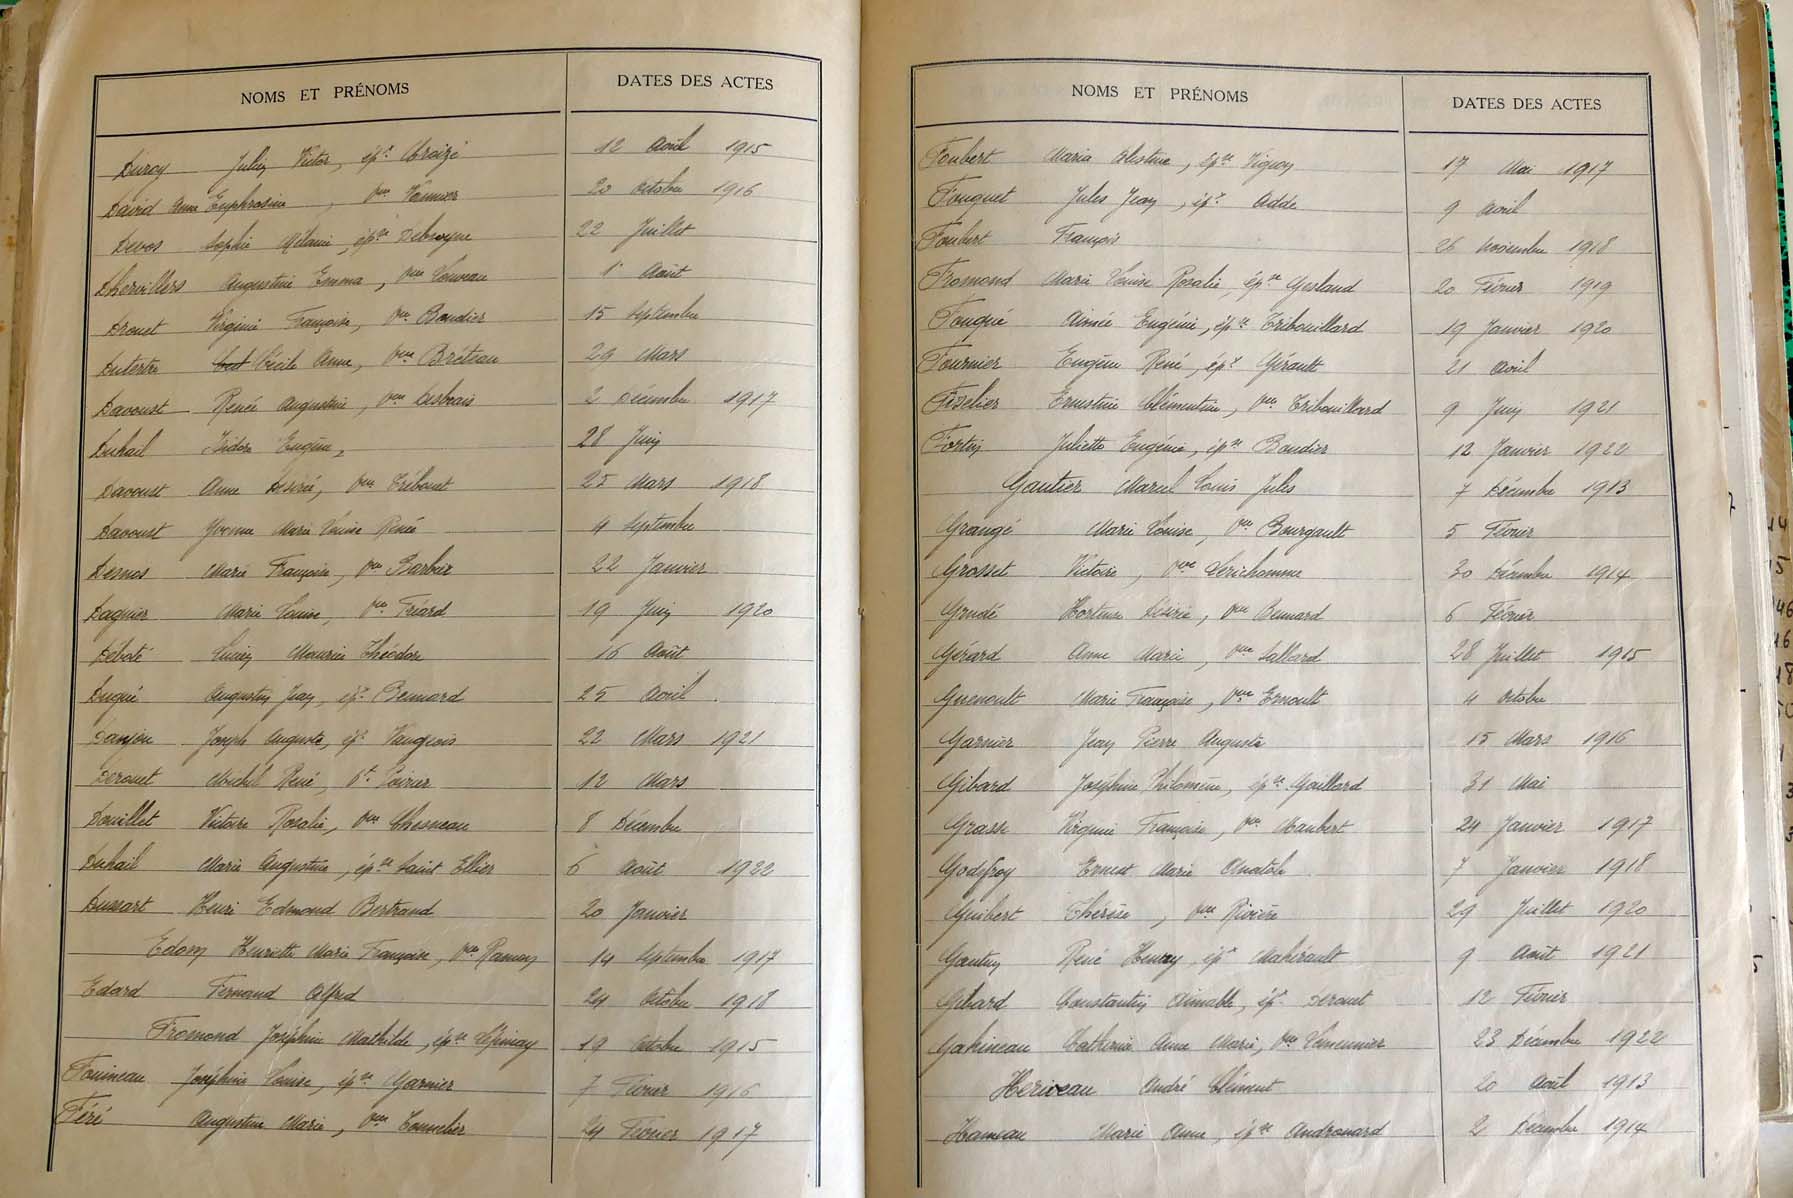 NOMS ET PRÉNOMS DATES DES ACTES
Duroy Julien Victor, épx Croizé 12 Août 1915
David Anne Euphrosine, vve Vannier 20 Octobre 1916
Devos Sophie Mélanie, épse Debroyne 22 Juillet
Dhervillers Augustine Emma, vve Louveau 1er Août
Drouet Virginie Françoise, vve Baudier 15 Septembre
Dutertre Cécile Anne, vve Bréteau 29 Mars
Davoust Renée Augustine, vve Desbois 2 Décembre 1917
Duhail Isidore Eugène, 28 Juin
Davoust Anne Désirée, vve Trébouet 25 Mars 1918
Davoust Yvonne Marie Louise Renée 9 Septembre
Desnos Marie Françoise, vve Barbier 22 Janvier
Dagnier Marie Louise, vve Friard 19 Juin 1920
Débaté Lucien Maurice Théodore 16 Août
Dugué Augustin Jean, épx Bennard 25 Avril
Danjou Joseph Auguste, épx Vaugeois 22 Mars 1921
Derouet Michel René, vf Poirier 12 Mars
Douillet Victoire Rosalie, vve Chesneau 8 Décembre
Duhail Marie Augustine, épse Saint Ellier 6 Août 1922
Dussart Henri Edmond Bertrand 20 Janvier
Edom Henriette Marie Françoise, vve Ramon 14 Septembre 1917
Edard Fernand Alfred 24 Octobre 1918
Fromond Joséphine Mathilde, épse Lépinay 19 Octobre 1915
Fouineau Joséphine Louise, épse Garnier 7 Février 1916
Féré Augustine Marie, vve Tonnelier 24 Février 1917
NOMS ET PRÉNOMS DATES DES ACTES
Foubert Maria Celestine, épse Vigeon 17 Mai 1917
Fouquet Jules Jean, épx Adde 9 Avril
Foubert François 26 Novembre 1918
Fromond Marie Louise Rosalie, épse Gesland 20 Février 1919
Fouqué Aimée Eugénie, épse Tribouillard 19 Janvier 1920
Fournier Eugène René, épx Gérault 21 Avril
Fiselier Ernestine Clémentine, vve Tribouillard 9 Juin 1921
Fortin Juliette Eugénie, épse Baudier 12 Janvier 1922
Gautier Marcel Louis Jules 7 Décembre 1913
Grangé Marie Louise, vve Bourgault 5 Février
Grosset Victoire, vve Derichomme 30 Décembre 1914
Grudé Hortense Désirée, vve Bennard 6 Février
Gérard Anne Marie, vve Sallard 28 Juillet 1915
Guenoult Marie Françoise, vve Ernoult 4 Octobre
Garnier Jean Pierre Auguste 15 Mars 1916
Gibard Joséphine Philomène, épse Gaillard 31 Mai
Grasse Virginie Françoise, vve Maubert 24 Janvier 1917
Godefroy Ernest Marie Anatole 7 Janvier 1918
Guibert Thérèse, vve Rivière 29 Juillet 1920
Gautun René Henry, épx Mahérault 9 Août 1921
Gibard Constantin Aimable, épx Derouet 12 Février
Gahineau Catherine Anne Marie, vve Lemeunier 23 Décembre 1922
Heriveau André Clément 20 Août 1913
Hameau Marie Anne, épse Androuard 2 Décembre 1914